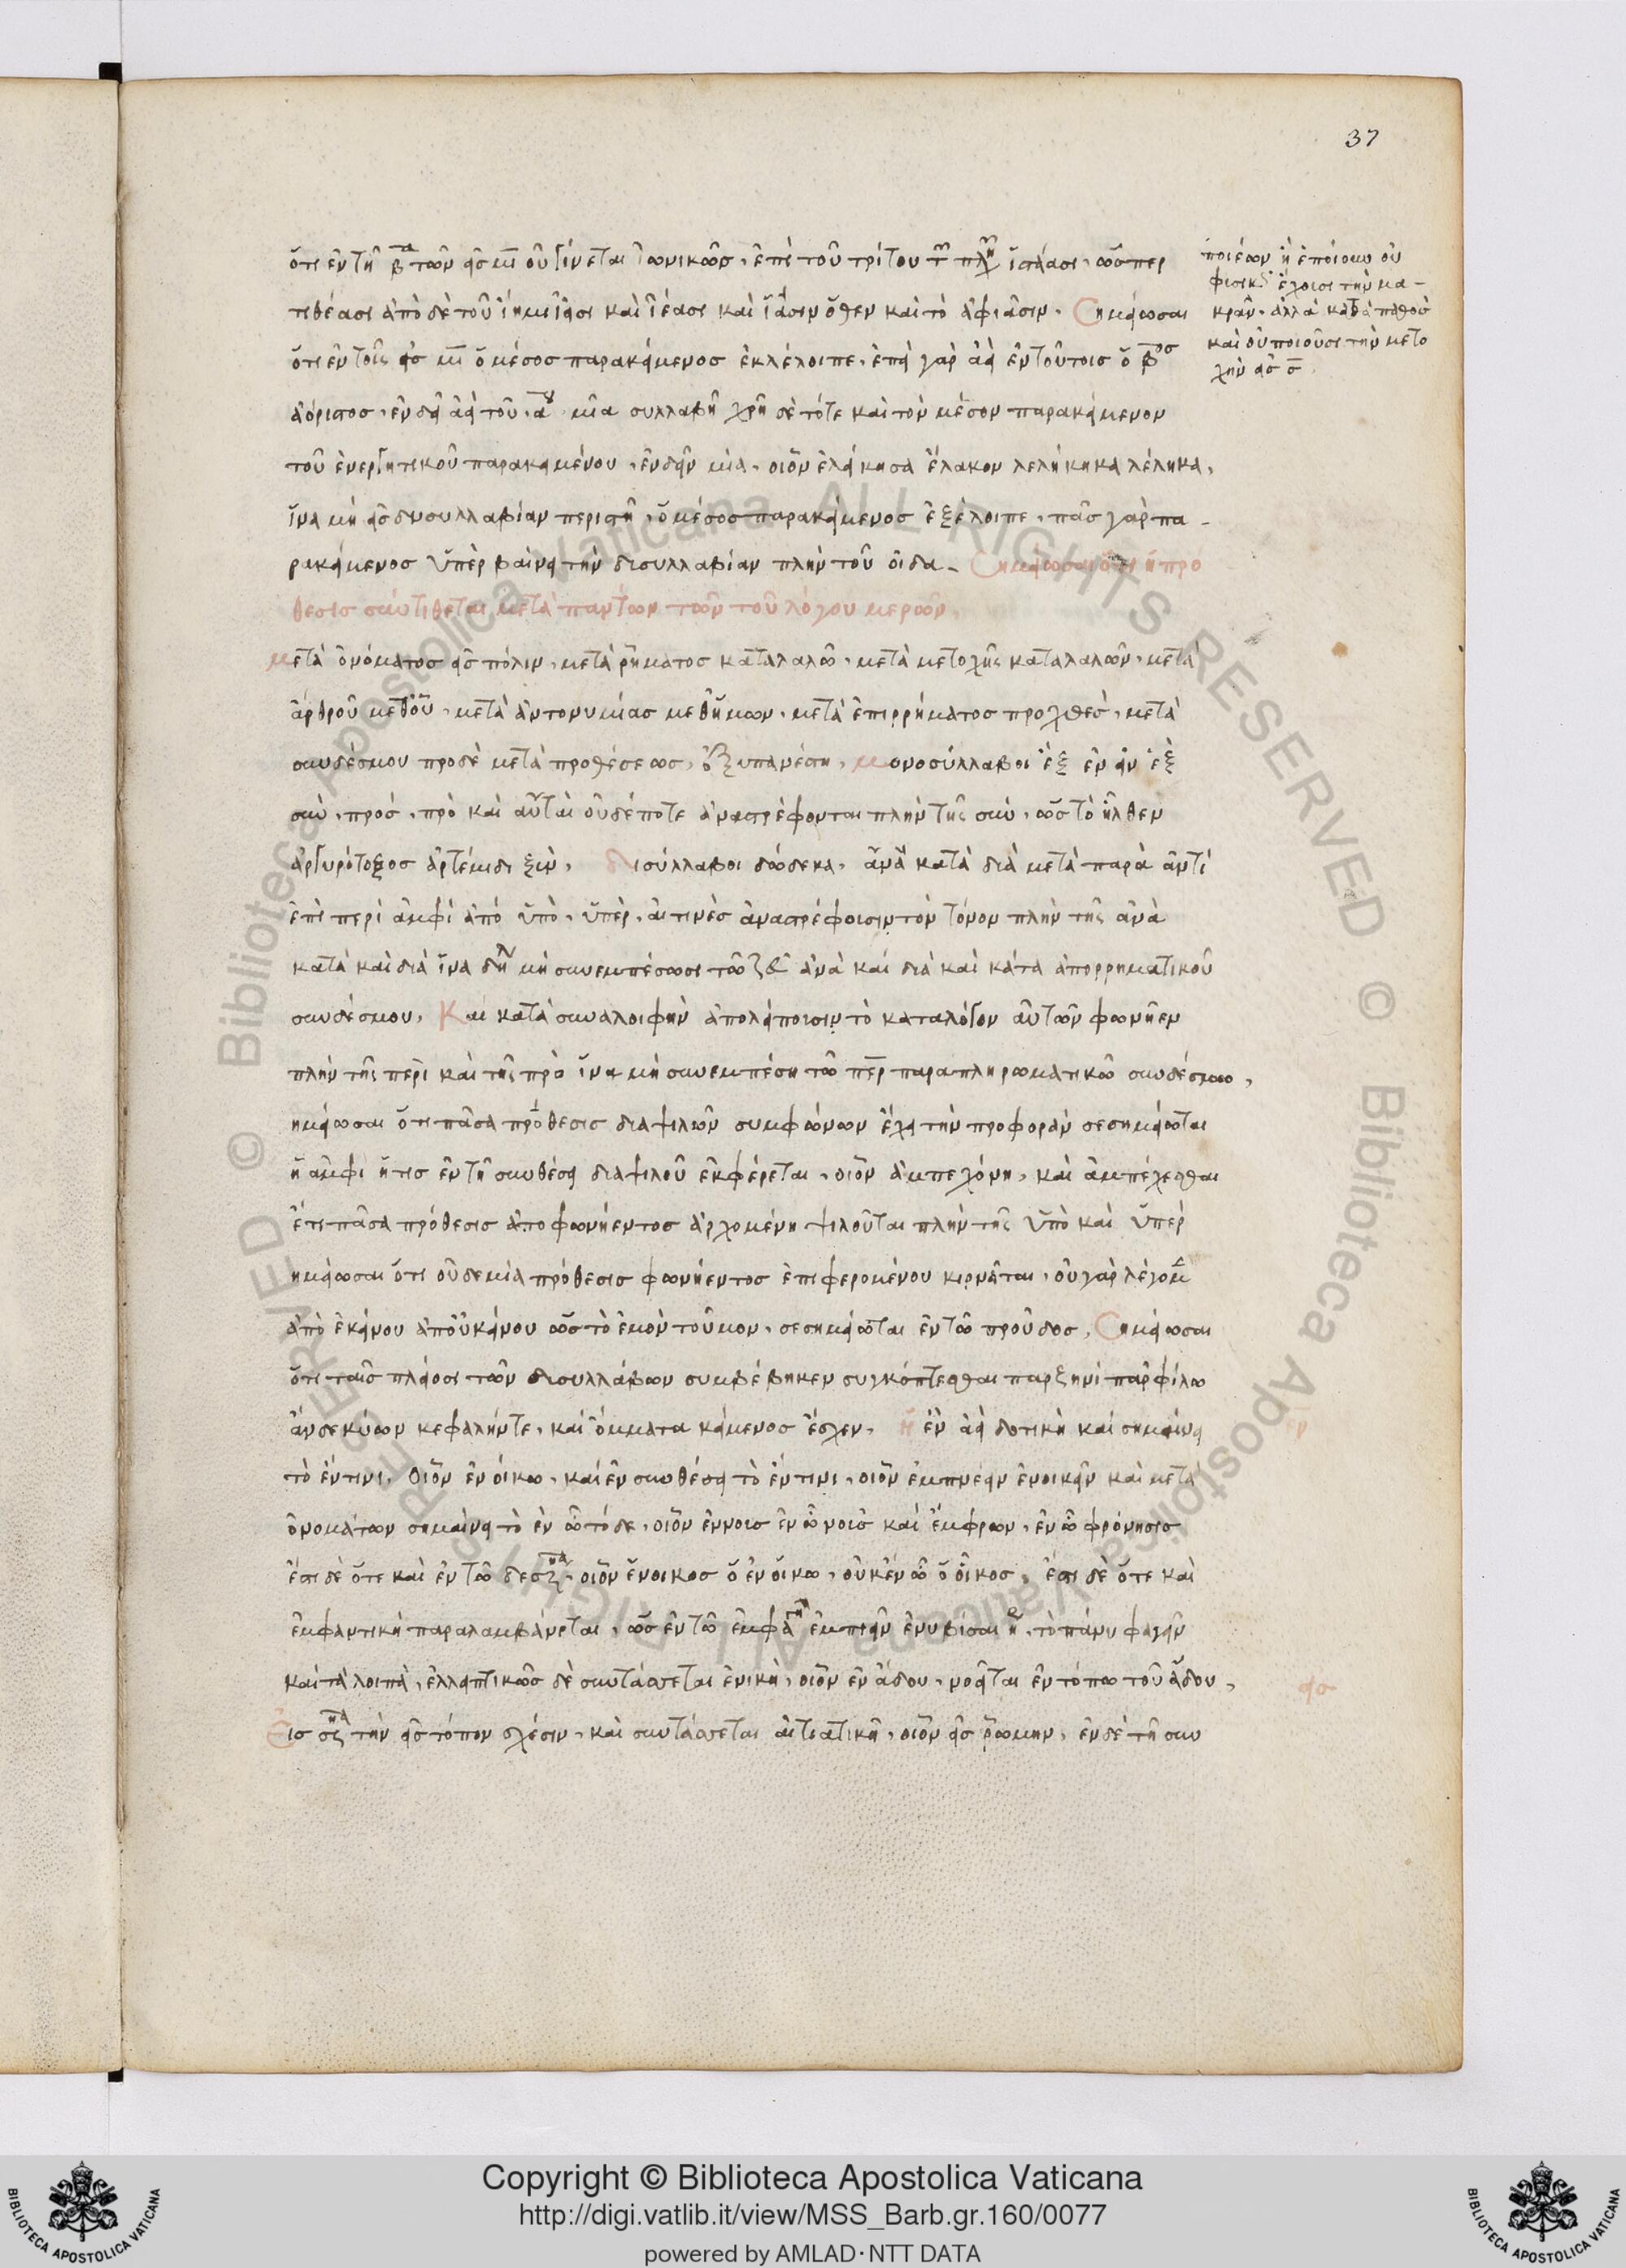 37
ὅτι ἐν τῇ β τῶν εἰς μι οὐ γίνεται ἰωνικῶς, ἐπὶ τοῦ τρίτου ἱστάασι, ὥσπερ
τιθέασι ἀπὸ δὲ τοῦ ἵημι ἱᾶσι καὶ ἱέασι καὶ ἱᾶσιν ὅθεν καὶ τὸ ἀφιᾶσιν. Σημείωσαι
ὅτι ἐν τοῖς εἰς μι ὁ μέσος παρακείμενος ἐκλέλοιπε, ἐπεὶ γὰρ ἀεὶ ἐν τούτοις ὁ βος
ἀόριστος, ἐνδεῖ ἀεὶ τοῦ αου μία συλλαβῇ χρὴ δὲ τότε καὶ τὸν μέσον παρακείμενον
τοῦ ἐνεργητικοῦ παρακειμένου, ἐνδεῖν μιᾷ, οἷον ἐλάκησα ἔλακον λελήκηκα λέληκα,
ἵνα μὴ εἰς δυσυλλαβίαν περιστῇ, ὁ μέσος παρακείμενος ἐξέλοιπε, πᾶς γὰρ πα-
ρακείμενος ὑπὲρ βαίνει τὴν δισυλλαβίαν πλὴν τοῦ οἶδα. Σημείωσαι ὅτι ἡ πρό
θεσις συντίθεται μετὰ πάντων τῶν τοῦ λόγου μερῶν,
μετὰ ὀνόματος εἰς πόλιν, μετὰ ῥήματος καταλαλῶ, μετὰ μετοχῆς καταλαλῶν, μετὰ
ἄρθρου μεθοῦ, μετὰ ἀντονυμίας μεθ ἡμῶν, μετὰ ἐπιρρήματος προχθές, μετὰ
συνδέσμου προδὲ μετὰ προθέσεως, ὀξυπανέστη, μονοσύλλαβοι ἓξ ἐν εἰν ἐξ
σύν, πρός, πρὸ καὶ αὗται οὐδέποτε ἀναστρέφονται πλὴν τῆς σύν, ὡς τὸ ἦλθεν
ἀργυρότοξος ἀρτέμιδι ξύν, δισύλλαβοι δώδεκα, ἀνὰ κατὰ διὰ μετὰ παρὰ ἀντὶ
ἐπὶ περὶ ἀμφὶ ἀπό ὑπὸ, ὑπὲρ, αἵτινες ἀναστρέφουσιν τὸν τόνον πλὴν τῆς ἀνὰ
κατὰ καὶ διὰ ἵνα μὴ συνεμπέσωσι τῷ ἄνα καὶ δία καὶ κάτα ἀπορρηματικοῦ
συνδέσμου, Καὶ κατὰ συναλοιφὴν ἀπολείπουσιν τὸ καταλόγον αὐτῶν φωνῆεν
πλὴν τῆς περὶ καὶ τῆς πρὸ ἵνα μὴ συνεμπέση τῷ περ παραπληρωματικῶ συνδέσμω,
ημείωσαι ὅτι πᾶσα πρόθεσις διαψιλῶν συμφώνων ἔχει τὴν προφορὰν σεσημείωται
ἡ ἀμφὶ ἥτις ἐν τῇ συνθέσει διαψιλοῦ ἐκφέρεται, οἷον ἀμπεχόνη, καὶ ἀμπέχεσθαι
ἔτι πᾶσα πρόθεσις ἀπο φωνήεντος ἀρχομένη ψιλοῦται πλὴν τῆς ὑπὸ καὶ ὑπὲρ
ημείωσαι ὅτι οὐδεμία πρόθεσις φωνήεντος ἐπιφερομένου κιρνᾶται, οὐ γὰρ λέγομεν
ἀπὸ ἐκείνου ἀποὐκείνου ὡς τὸ ἐμὸν τοὐμον, σεσημείωται ἐν τῷ προὖδος, Σημείωσαι
ὅτι ταῖς πλείοσι τῶν δισυλλάβων συμβέβηκεν συγκόπτεσθαι παρξηνί παρφίλω
ἄνδεκύων κεφαλήντε, καὶ ὄμματα κείμενος ἔσχεν, ἡ ἐν ἀεὶ δοτικὴ καὶ σημαίνει
τὸ ἔντινι, οἷον ἐν οἴκω, καὶ ἐν συνθέσει τὸ ἔντινι, οἷον ἐμπνέειν ἐνοικεῖν καὶ μετὰ
ὀνομάτων σημαίνει τὸ ἐν ᾧ τόδε, οἷον ἔννοις ἐν ᾧ νοῖς καὶ ἔμφρων, ἐν ᾧ φρόνησις
ἔστι δὲ ὅτε καὶ ἐν τῷ οἷον ἔνοικος ὁ ἐν οἴκω, οὐκ ἐν ᾧ ὁ οἶκος, ἔστι δὲ ὅτε καὶ
ἐμφαντικὴ παραλαμβάνεται, ὡς ἐν τῷ ἐμφα ἐμπιεῖν ἐνυβρίσαι, τὸ πάνυ φαγεῖν
καὶ τὰ λοιπὰ, ἐλλειπτικῶς δὲ συντάσσεται ἑνικὴ, οἷον ἐν ἅδου, νοεῖται ἐν τόπω τοῦ ἅδου,
Εις τὴν εἰς τόπον σχέσιν, καὶ συντάσσεται αἰτιατικῇ, οἷον εἰς ῥώμην, ἐν δὲ τῇ συν
ποιέων ἢ ἐποίουν οὐ
φισικ ἔχοισι τὴν μα-
κρὰν, ἀλλὰ κατὰ πάθος
καὶ οὐ ποιοῦσι τὴν μετο
χὴν εἰς ς
ἐν
εἰς
Copyright © Biblioteca Apostolica Vaticana
http://digi.vatlib.it/view/MSS_Barb.gr.160/0077
powered by AMLAD·NTT DATA